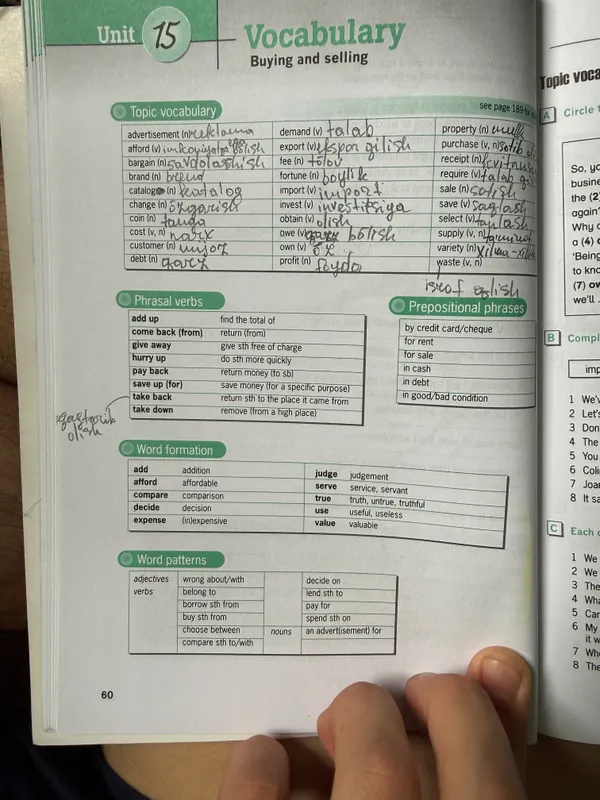 Unit 15
Vocabulary
Buying and selling
Topic vocabulary
see page 189 for
advertisement (n) reklama
demand (v) talab
property (n) mulk
afford (v) imkoniyatga ega bõlish
export (v) ekspor qilish
purchase (v, n) sotib oli
bargain (n) savdolashish
fee (n) tõlov
receipt (n)
brand (n) brend
fortune (n) boylik
require (v) talab qi
catalogue (n) katalog
import (v) import
sale (n) sotish
change (n) õzgarish
invest (v) investitsiya
save (v) saqlash
coin (n) tanga
obtain (v) olish
select (v) tanlash
cost (v, n) narx
owe (v) qarz bõlish
supply (v, n)
customer (n) mijoz
own (v)
variety (n) xilma-xil
debt (n) qarz
profit (n) foyda
waste (v, n)
isrof qilish
Phrasal verbs
add up find the total of
come back (from) return (from)
give away give sth free of charge
hurry up do sth more quickly
pay back return money (to sb)
save up (for) save money (for a specific purpose)
take back return sth to the place it came from
take down remove (from a high place)
qaytarib
olish
Prepositional phrases
by credit card/cheque
for rent
for sale
in cash
in debt
in good/bad condition
Word formation
add addition
afford affordable
compare comparison
decide decision
expense (in)expensive
judge judgement
serve service, servant
true truth, untrue, truthful
use useful, useless
value valuable
Word patterns
adjectives wrong about/with
verbs belong to
borrow sth from
buy sth from
choose between
compare sth to/with
decide on
lend sth to
pay for
spend sth on
nouns an advert(isement) for
60
Topic voca
A Circle t
So, yo
busine
the (2)
again?
Why c
a (4) c
'Being
to kno
(7) ow
we'll
B Compl
imp
1 We'v
2 Let's
3 Don
4 The
5 You
6 Coli
7 Joar
8 It sa
C Each c
1 We
2 We
3 The
4 Wha
5 Car
6 My
it w
7 Whe
8 The